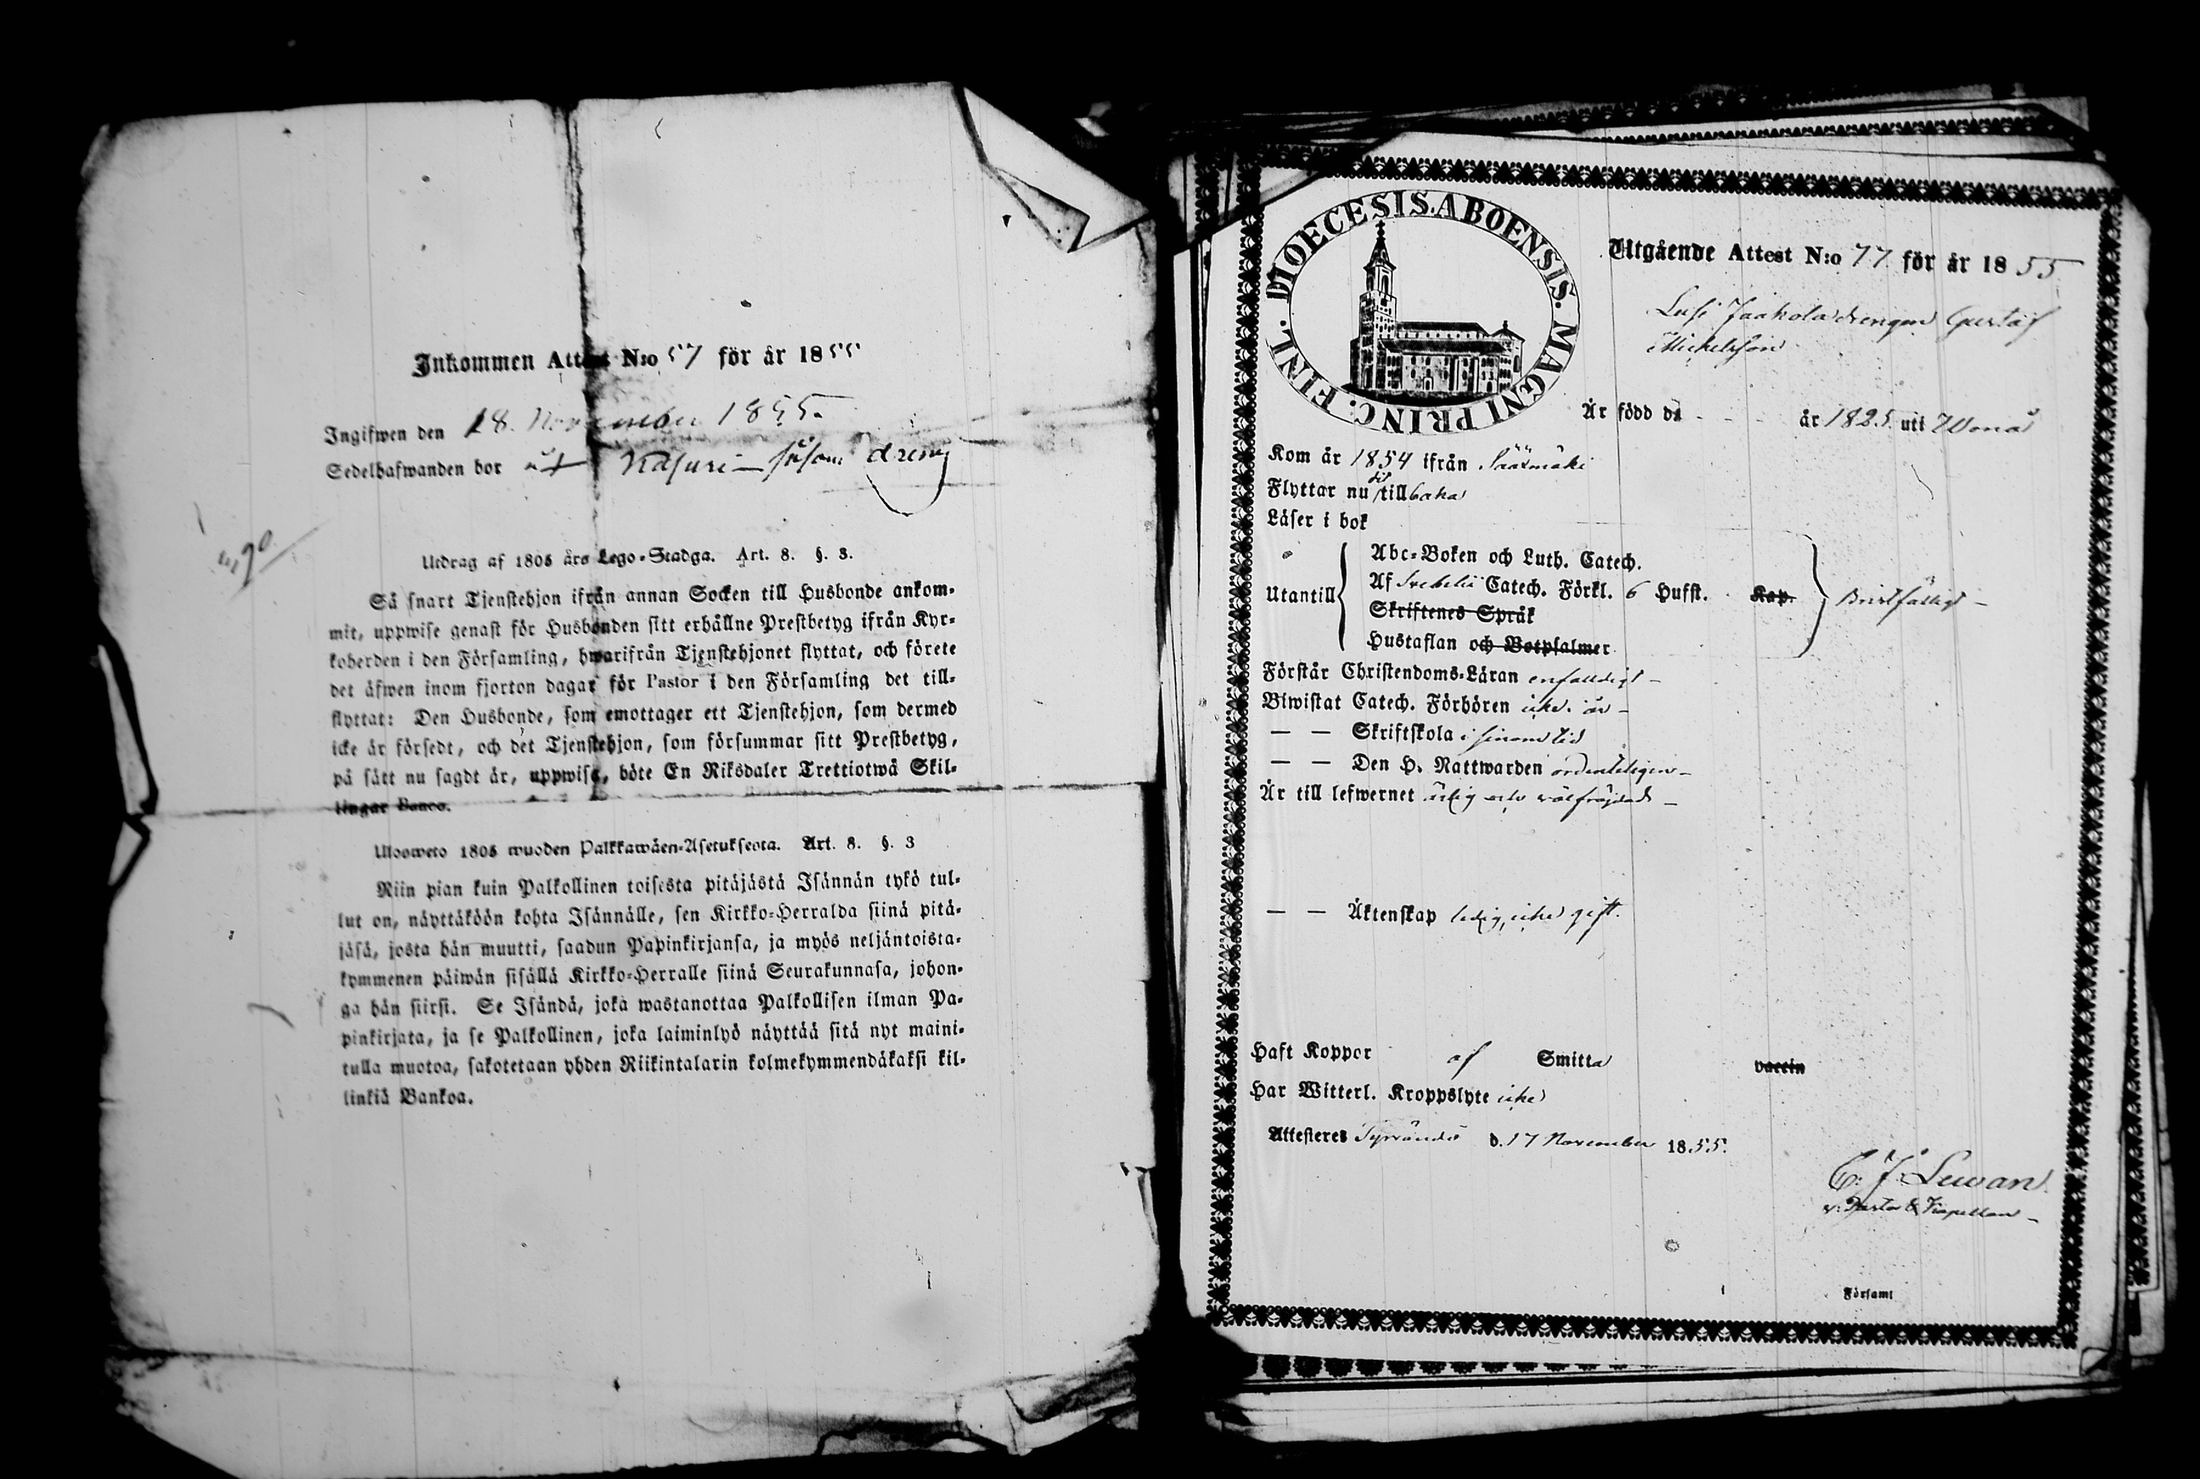 Inkommen Attest N:o 57 för år 1855
Ingifwen den 18. November 1855.
Sedelhafwanden bor Kasuri såsom dreng
Utdrag af 1805 års Lego-Stadga. Art. 8. §. 3.
Så snart Tjenstehjon ifrån annan Socken till Husbonde ankom-
mit, uppwise genast för Husbonden sitt erhållne Prestbetyg ifrån Kyr-
koherden i den Församling, hwarifrån Tjenstehjonet flyttat, och förete
det äfwen inom fjorton dagar för Pastor i den Församling det till-
flyttat: Den Husbonde, som emottager ett Tjenstehjon, som dermed
icke är försedt, och det Tjenstehjon, som försummar sitt Prestbetyg,
på sätt nu sagdt är, uppwisa, böte En Riksdaler Trettiotwå Skil-
lingar Banco.
Ulosweto 1805 wuoden Palkkawäen-Asetuksesta. Art. 8. §. 3
Niin pian kuin Palkollinen toisesta pitäjästä Isännän tykö tul-
lut on, näyttäköön kohta Isännälle, sen Kirkko-Herralda siinä pitä-
jäsä, josta hän muutti, saadun Papinkirjansa, ja myös neljäntoista-
kymmenen päiwän sisällä Kirkko-Herralle siinä Seurakunnasa, johon-
ga hän siirsi. Se Isändä, joka wastanottaa Palkollisen ilman Pa-
pinkirjata, ja se Palkollinen, joka laiminlyö näyttää sitä nyt maini-
tulla muotoa, sakotetaan yhden Riikintalarin kolmekymmendäkaksi kil-
linkiä Bankoa.
DIOECESIS. ABOENSIS. MAGNI PRINC. FINL.
Utgående Attest N:o 77 för år 1855
Jaakola drengen Gustaf
Michelsson
Är född d. - - år 1825. uti
Kom år 1854 ifrån Sääxmäki
Flyttar nu dit tillbaka
Läser i bok
Abc-Boken och Luth. Catech.
Utantill Af Svebelii Catech. Förkl. 6 Hufst. Kap. Bristfälligt -
Skriftenes Språk
Hustaflan och Botpsalmer
Förstår Christendoms-Läran enfaldigt -
Biwistat Catech. Förhören icke i år -
— — Skriftskola i sinom tid
— — Den H. Nattwarden ordenteligen -
Är till lefwernet ärlig och välfräjdad -
— — Äktenskap ledig, icke gift.
Haft Koppor af Smitta vaccin
Har Witterl. Kroppslyte icke
Attesteres Tyrvändö d. 17 November 1855.
v. Pastor & Kapellan -
Församl